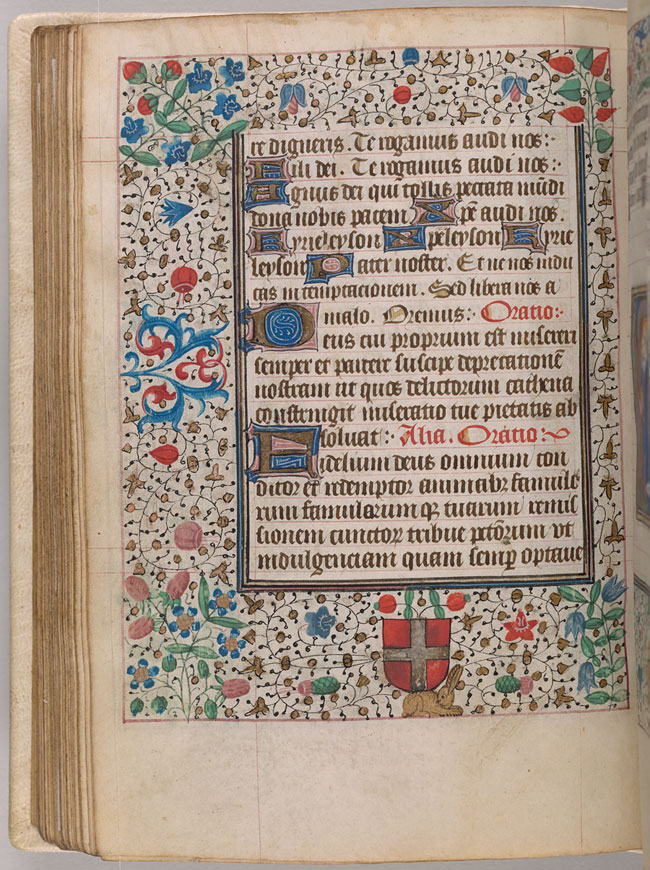 re digneris. Te rogamus audi nos:
Fili dei. Te rogamus audi nos:
Agnus dei qui tollis peccata mũdi
dona nobis pacem. Xpe audi nos.
Kyrieleyson Xpeleyson Kyrie
leyson Pater noster. Et ne nos indu
cas in temptacionem. Sed libera nos a
malo. Oremus: Oratio:
Deus cui proprium est misereri
semper et parcere suscipe deprecationē
nostram ut quos delictorum cathena
constringit miseratio tue pietatis ab
soluat: Alia. Oratio:
Fidelium deus omnium con
ditor et redemptor animabꝫ famulo
rum famularum qꝫ tuarum remis
sionem cunctoꝝ tribue pctõrum vt
indulgenciam quam semp optaue